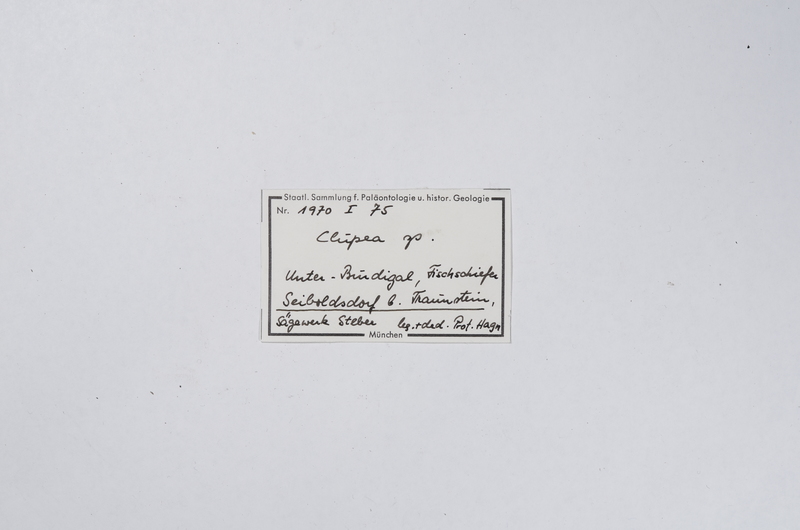 Staatl. Sammlung f. Paläontologie u. histor. Geologie
Nr. 1970 I 75
Clupea sp.
Unter-Burdigal, Fischschiefer
Seiboldsdorf b. Traunstein,
Sägewerk Steber leg. + ded. Prof. Hagn
München